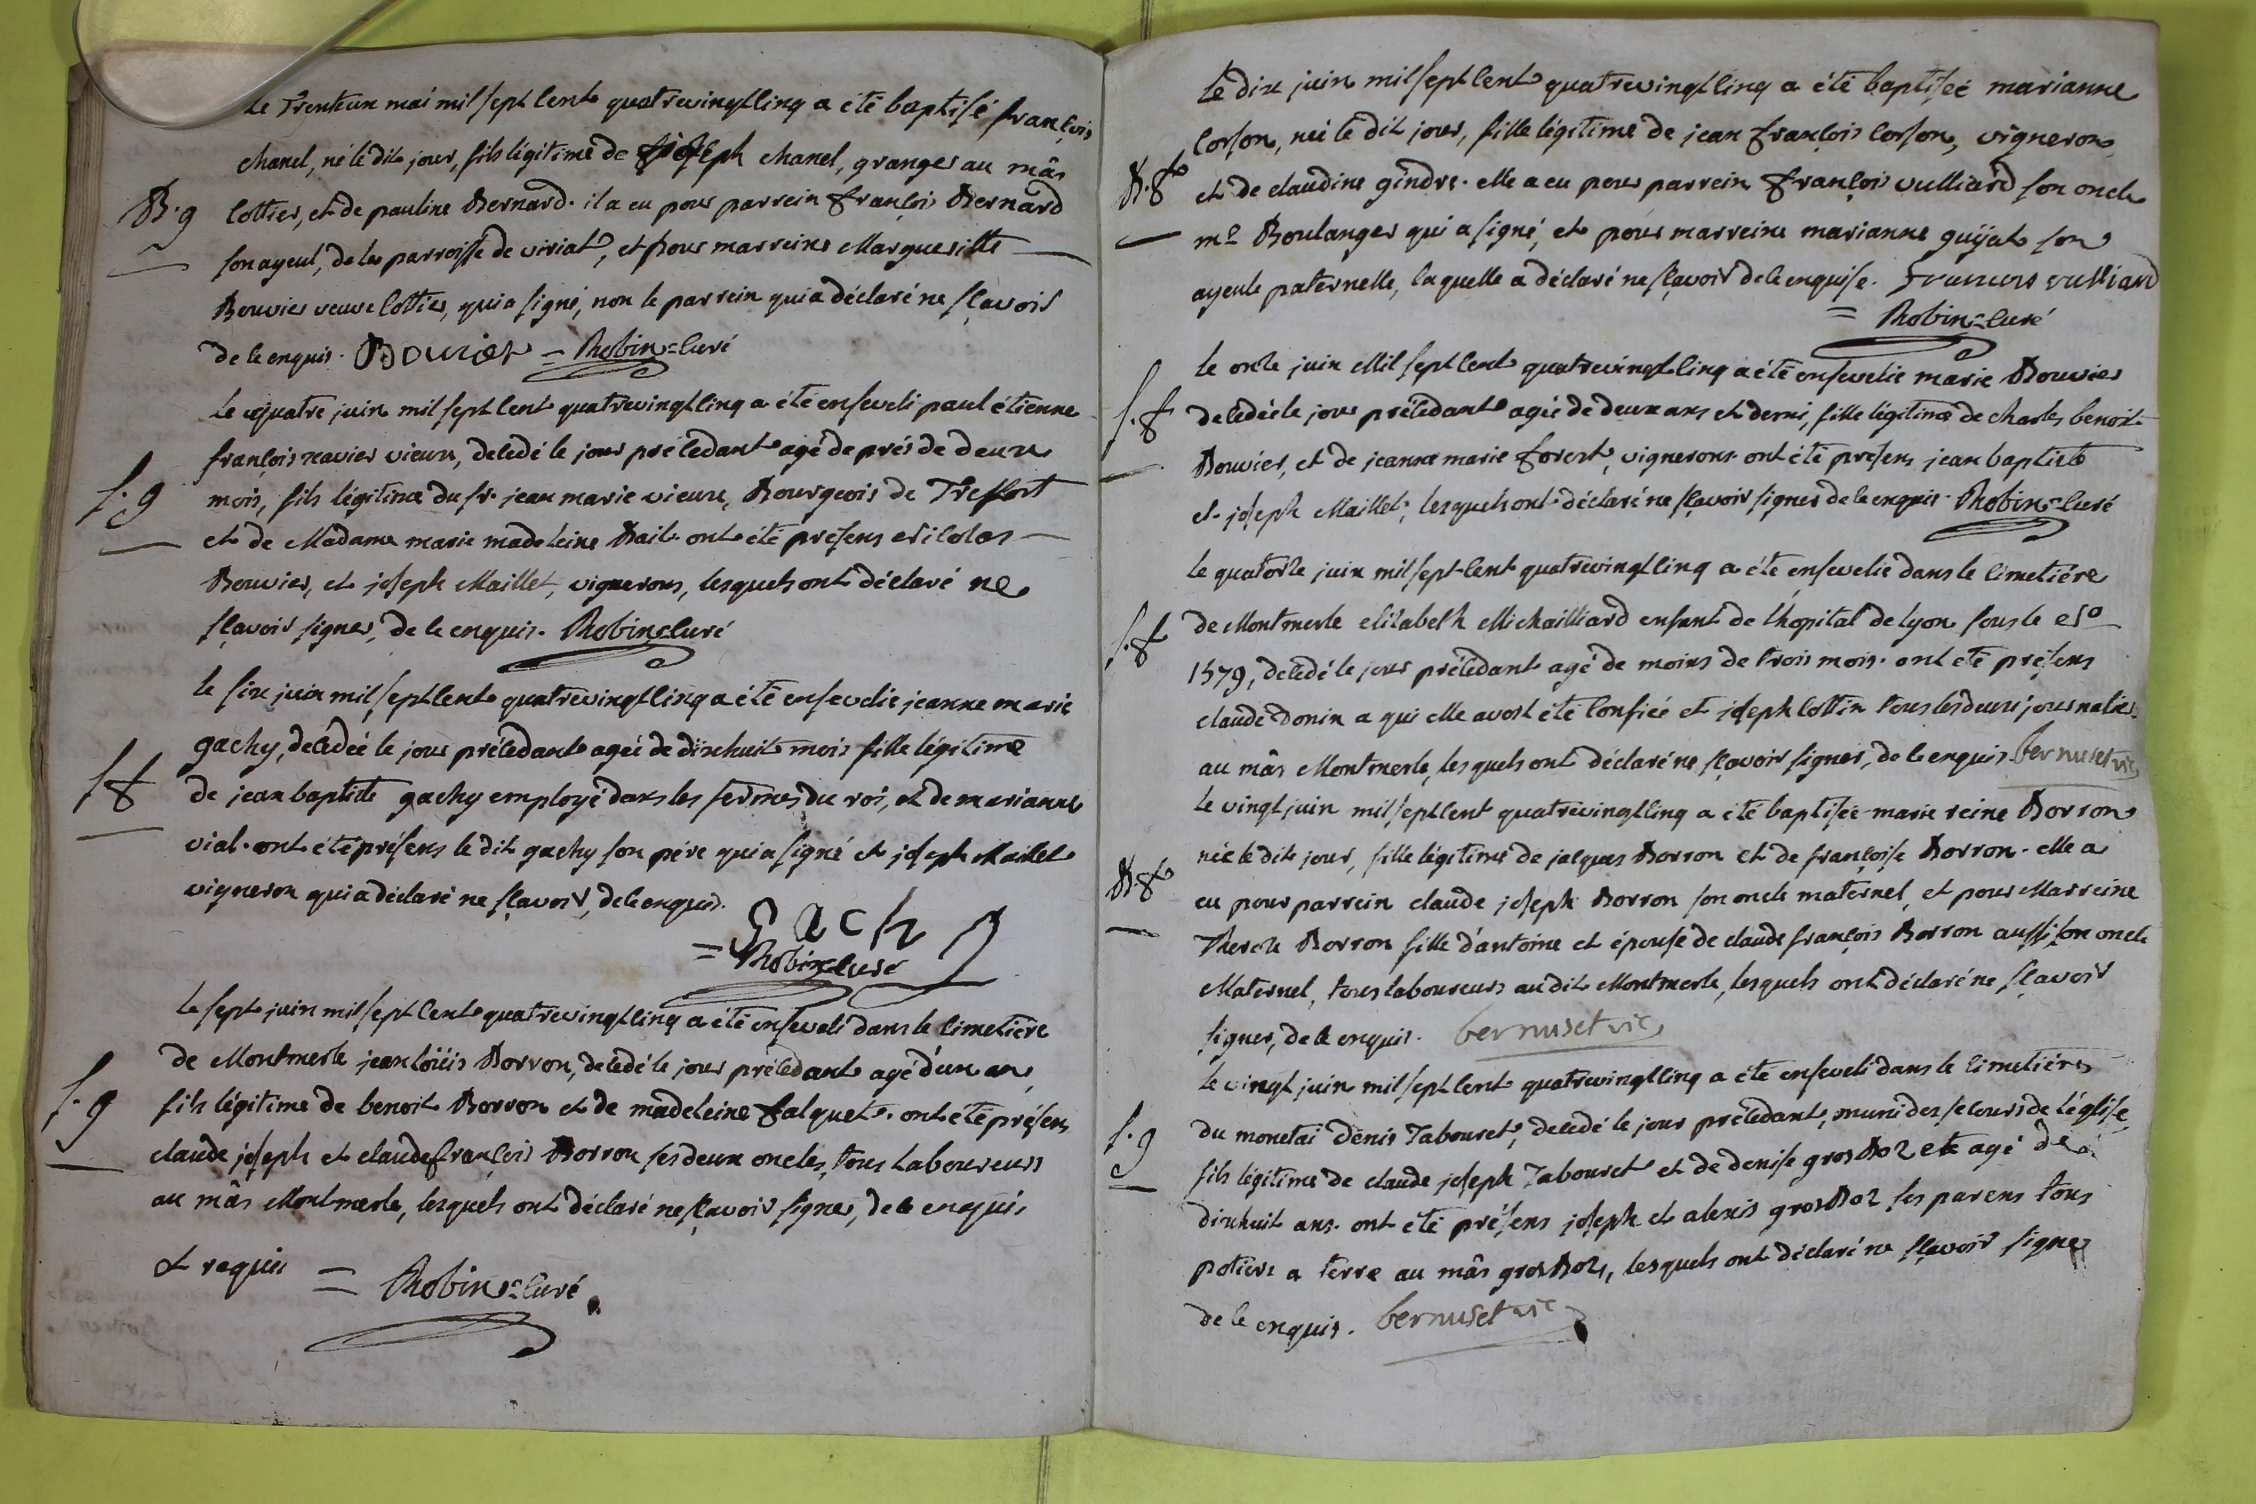 Le Trenteun mai mil sept cent quatrevingtcinq a été baptisé françois
chanel, né le dit jour, fils légitime de joseph chanel, granger au mâs
B. g cottier, et de pauline Bernard. il a eu pour parrein françois Bernard
son ayeul, de la parroisse de viriat, et pour marreine Margueritte
Bouvier veuve cottier, qui a signé, non le parrein qui a déclaré ne sçavoir
de ce enquis. Bouvier = Robin curé
Le quatre juin mil sept cent quatrevingtcinq a été enseveli paul étienne
françois xavier vieux, decedé le jour précedant agé de prés de deux
S. g mois, fils légitime du sr. jean marie vieux, Bourgeois de Treffort
et de Madame marie madeleine Bail. ont été présens Nicolas
Bouvier, et joseph Maillet, vignerons, lesquels ont déclaré ne
sçavoir signer, de ce enquis. Robin curé
le six juin mil sept cent quatrevingtcinq a été ensevelie jeanne marie
gachy, decedée le jour précedant agée de dixhuit mois fille légitime
S f de jean baptiste gachy employé dans les fermes du roi, et de marianne
vial. ont été présens le dit gachy son pére qui a signé et joseph Maillet
vigneron qui a déclaré ne sçavoir, de ce enquis.
= Gachy
Robin curé
le sept juin mil sept cent quatrevingtcinq a été enseveli dans le cimetière
de Montmerle jean loüis Borron, decedé le jour précedant agé d'un an,
S. g fils légitime de benoit Borron et de madeleine falquet. ont été présens
claude joseph et claude françois Borron ses deux oncles, tous laboureurs
au mâs Montmerle, lesquels ont déclaré ne sçavoir signer, de ce enquis
et requis = Robin curé
Le dix juin mil sept cent quatrevingtcinq a été baptisée marianne
corson, née le dit jour, fille légitime de jean françois corson, vigneron,
B. f et de claudine gindre. elle a eu pour parrein françois vulliard son oncle
me Boulanger qui a signé, et pour marreine marianne guÿat son
ayeule paternelle, laquelle a déclaré ne sçavoir de ce enquise. francois vulliard
= Robin curé
Le onze juin Mil sept cent quatrevingtcinq a été ensevelie marie Bouvier
S. f decedée le jour précedant agée de deux ans et demi, fille légitime de charles benoit
Bouvier, et de jeanne marie forest, vignerons. ont été présens jean baptiste
et joseph Maillet, lesquels ont déclaré ne sçavoir signer de ce enquis. Robin curé
Le quatorze juin mil sept cent quatrevingtcinq a été ensevelie dans le cimetiére
S. f de Montmerle elizabeth Michailliard enfant de l'hopital de lyon sous le No
1579, decedé le jour précedant agé de moins de trois mois. ont été présens
claude donin a qui elle avoit été confiée et joseph cottin tous les deux journalier.
au mâs Montmerle, lesquels ont déclaré ne sçavoir signer, de ce enquis. bernuset vic
Le vingt juin mil sept cent quatrevingtcinq a été baptisée marie reine Borron
née le dit jour, fille légitime de jacques Borron et de françoise Borron. elle a
B. f eu pour parrein claude joseph Borron son oncle maternel, et pour Marreine
Therese Borron fille d'antoine et épouse de claude françois Borron aussi son oncle
Maternel, tous laboureurs au dit Montmerle, lesquels ont déclaré ne sçavoir
signer, de ce enquis. bernuset vic
Le vingt juin mil sept cent quatrevingtcinq a été enseveli dans le cimetiére
S. g du monetai denis Tabouret, decedé le jour précedant, muni des secours de l'église
fils légitime de claude joseph Tabouret et de denise grosBoz agé de
dixhuit ans. ont été présens joseph et alexis grosBoz ses parens tous
potiers a terre au mâs grosBoz, lesquels ont déclaré ne sçavoir signer
de ce enquis. bernuset vic